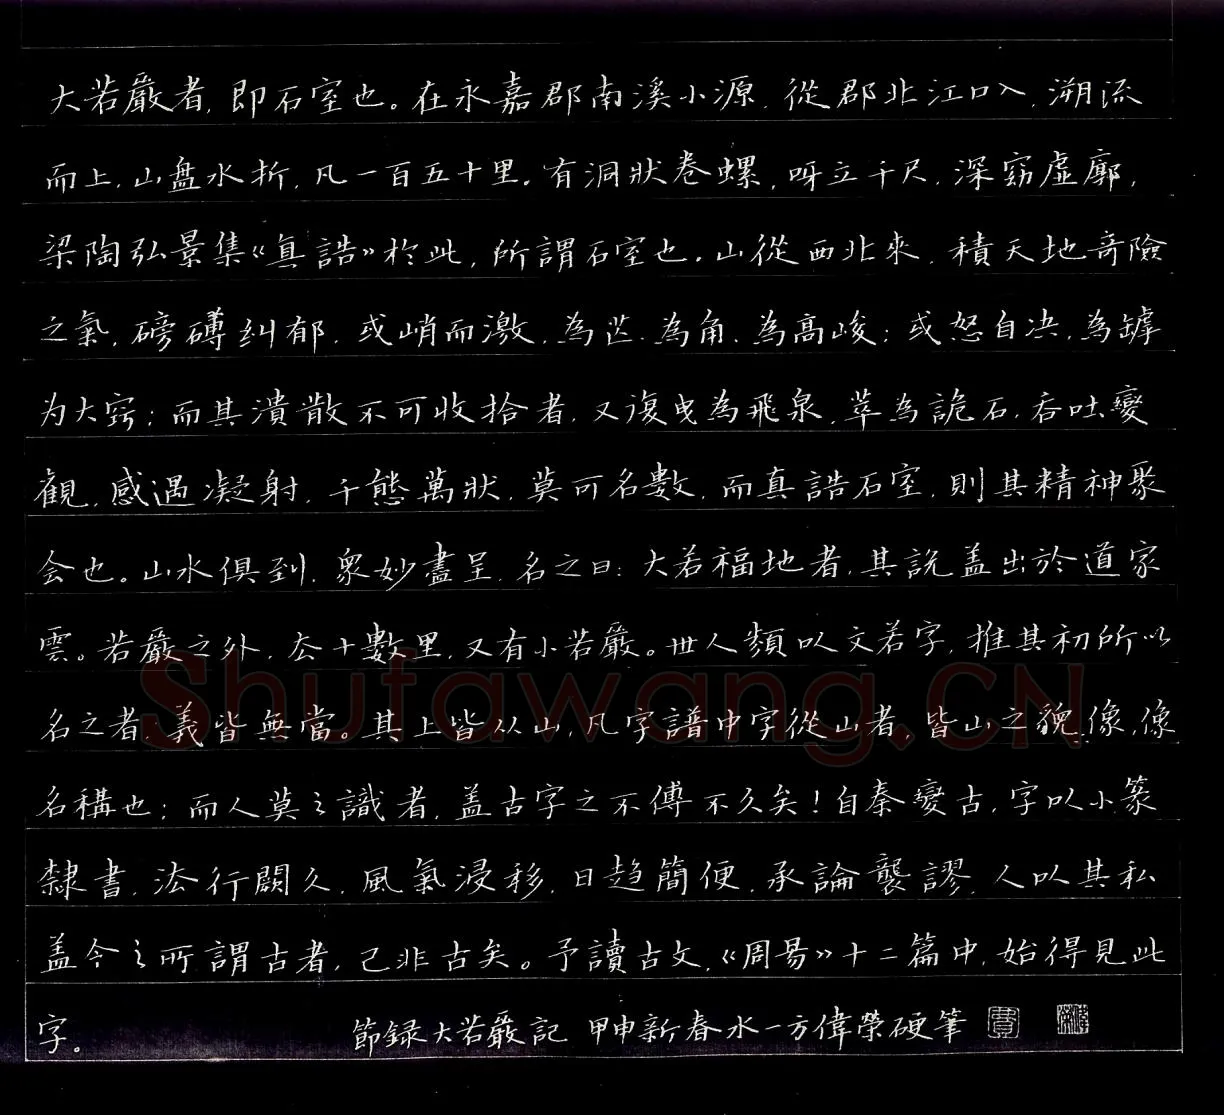 大若巖者，即石室也。在永嘉郡南溪小源，從郡北江口入，溯流
而上，山盘水折，凡一百五十里。有洞狀卷螺，呀立千尺，深窈虚廓，
梁陶弘景集《真誥》於此，所謂石室也。山從西北來，積天地奇險
之氣，磅礡纠郁，或峭而激，為芒、為角、為高峻；或怒自决，為罅
为大窍；而其潰散不可收拾者，又復曳為飛泉，萃為詭石，吞吐變
觀，感遇凝射，千態萬狀，莫可名數，而真誥石室，則其精神聚
会也。山水俱到，衆妙盡呈，名之曰：大若福地者，其説盖出於道家
雲。若巖之外，去十數里，又有小若巖。世人類以文若字，推其初所以
名之者，義皆無當。其上皆从山，凡字譜中字從山者，皆山之貌像，像
名稱也；而人莫之識者，盖古字之不傳不久矣！自秦變古，字以小篆
隸書，法行闕久，風氣浸移，日趋簡便，承論襲謬，人以其私
盖今之所謂古者，已非古矣。予讀古文，《周易》十二篇中，始得見此
字。
節録大若巖記 甲申新春水一方偉榮硬筆
Shufawang.CN